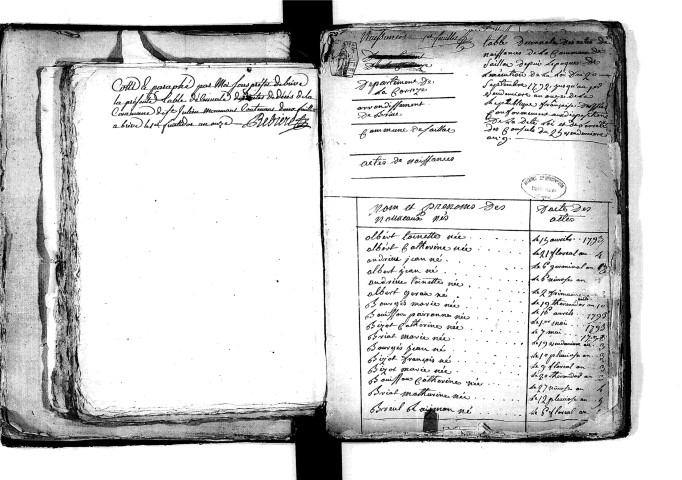 Cotté & paraphé par Moi sous préfet de brive
la présente table décennale des actes de décès de la
Commune de St Julien maumont Contenant deux feuilles
a brive le quatorze an onze
Naissances 1er feuille
Departement de
la Correze
arrondissement
de Brive
Commune de Saillac
actes de naissances
table Decennale des actes de
naissances de la Commune de
Saillac depuis l'epoque de
l'execution de la loi Du 20
Septembre 1792 jusqu'au 1er
vendemiaire an onze de la
republique françoise
Conformement aux dispositions
De la dite loi et de l'arrete
des Consuls du 25 vendemiaire
an 9
Nom et prenoms des
Nouveaux nés
Dates des
actes
albert toinette née le 15 avril 1793
albert Catherine née le 21 floreal an 4
andrieu jean né
albert jean né le 6 germinal an
andrieu toinette née le 6 nivose an
albert geraud né le 2 frimaire
Bourgés marie née le 19 thermidor
Bouissou peironne née le 10 avril 1793
Bizot Catherine née le 1er mai 1793
Briat marie née le 7 mai
Bourgés jean né le 19 vendemiaire an 3
Bizot françois né le 10 pluviose an
Bizot marie née le 9 floreal an 3
Bouissou Catherine née le thermidor an
Briat matherine née le 27 nivose an 4
le 12 pluviose an 5
Breuil né le 6 floreal an